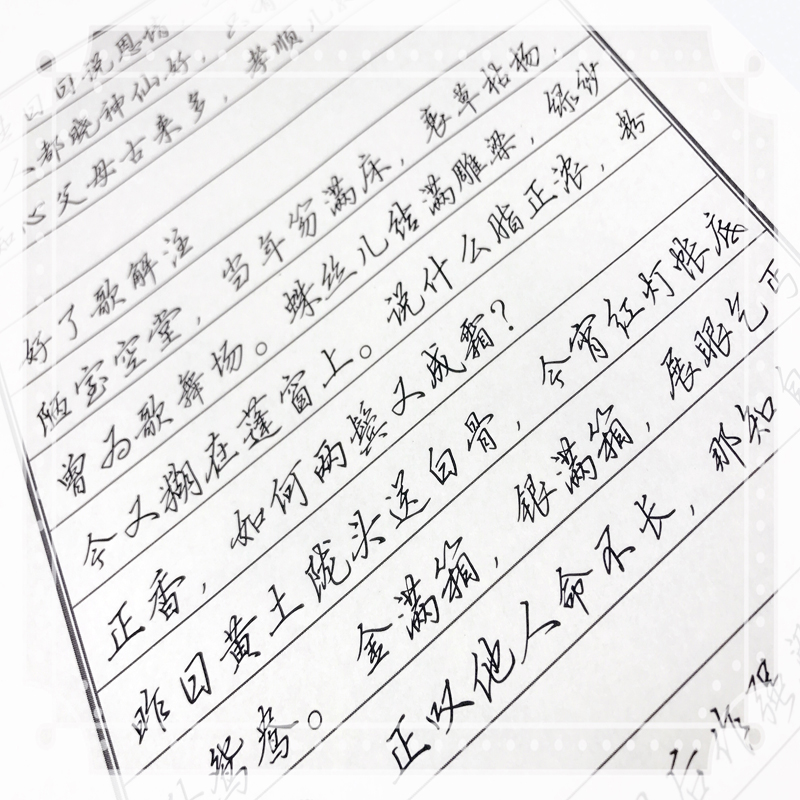 日日说恩情
人都晓神仙好，
心父母古来多，孝顺儿
好了歌解注
陋室空堂，当年笏满床，衰草枯杨，
曾为歌舞场。蛛丝儿结满雕梁，绿纱
今又糊在蓬窗上。说什么脂正浓，粉
正香，如何两鬓又成霜？
昨日黄土陇头送白骨，今宵红灯帐底
鸳鸯。金满箱，银满箱，展眼乞丐
正叹他人命不长，那知自
后作强